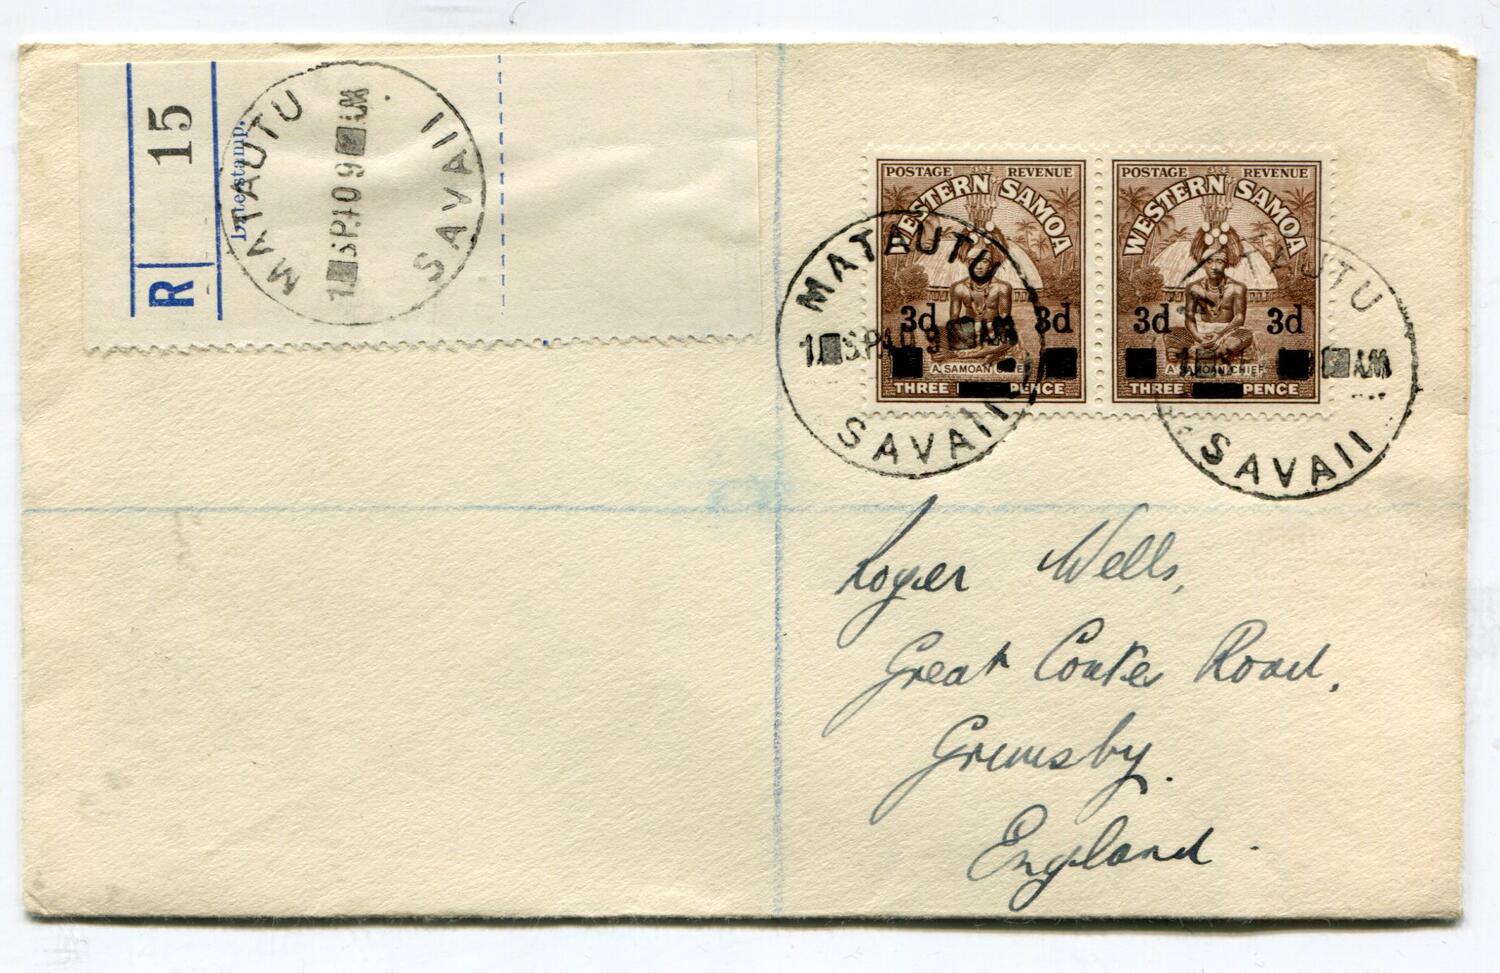 R 15
Date stamp.
MATAUTU
1 SP 40 9 AM
SAVAII
POSTAGE REVENUE
WESTERN SAMOA
3d 3d
A SAMOAN CHIEF
THREE PENCE
POSTAGE REVENUE
WESTERN SAMOA
3d 3d
A SAMOAN CHIEF
THREE PENCE
MATAUTU
1 SP 40 9 AM
SAVAII
MATAUTU
1 AM
SAVAII
Roger Wells,
Great Coates Road,
Grimsby.
England.